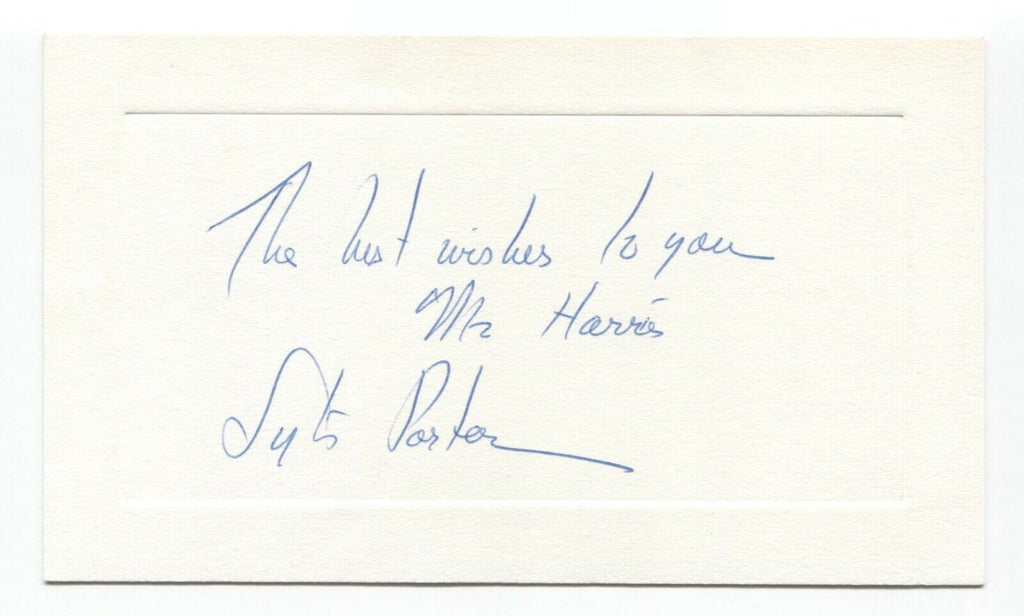 The best wishes to you
Mr Harris
Porter